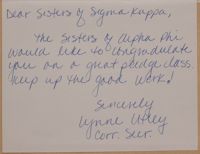 Dear Sisters of Sigma Kappa,
The Sisters of Alpha Phi
would like to congradulate
you on a great pledge class.
Keep up the good work!
Sincerely
Lynne Utley
Corr. Secr.